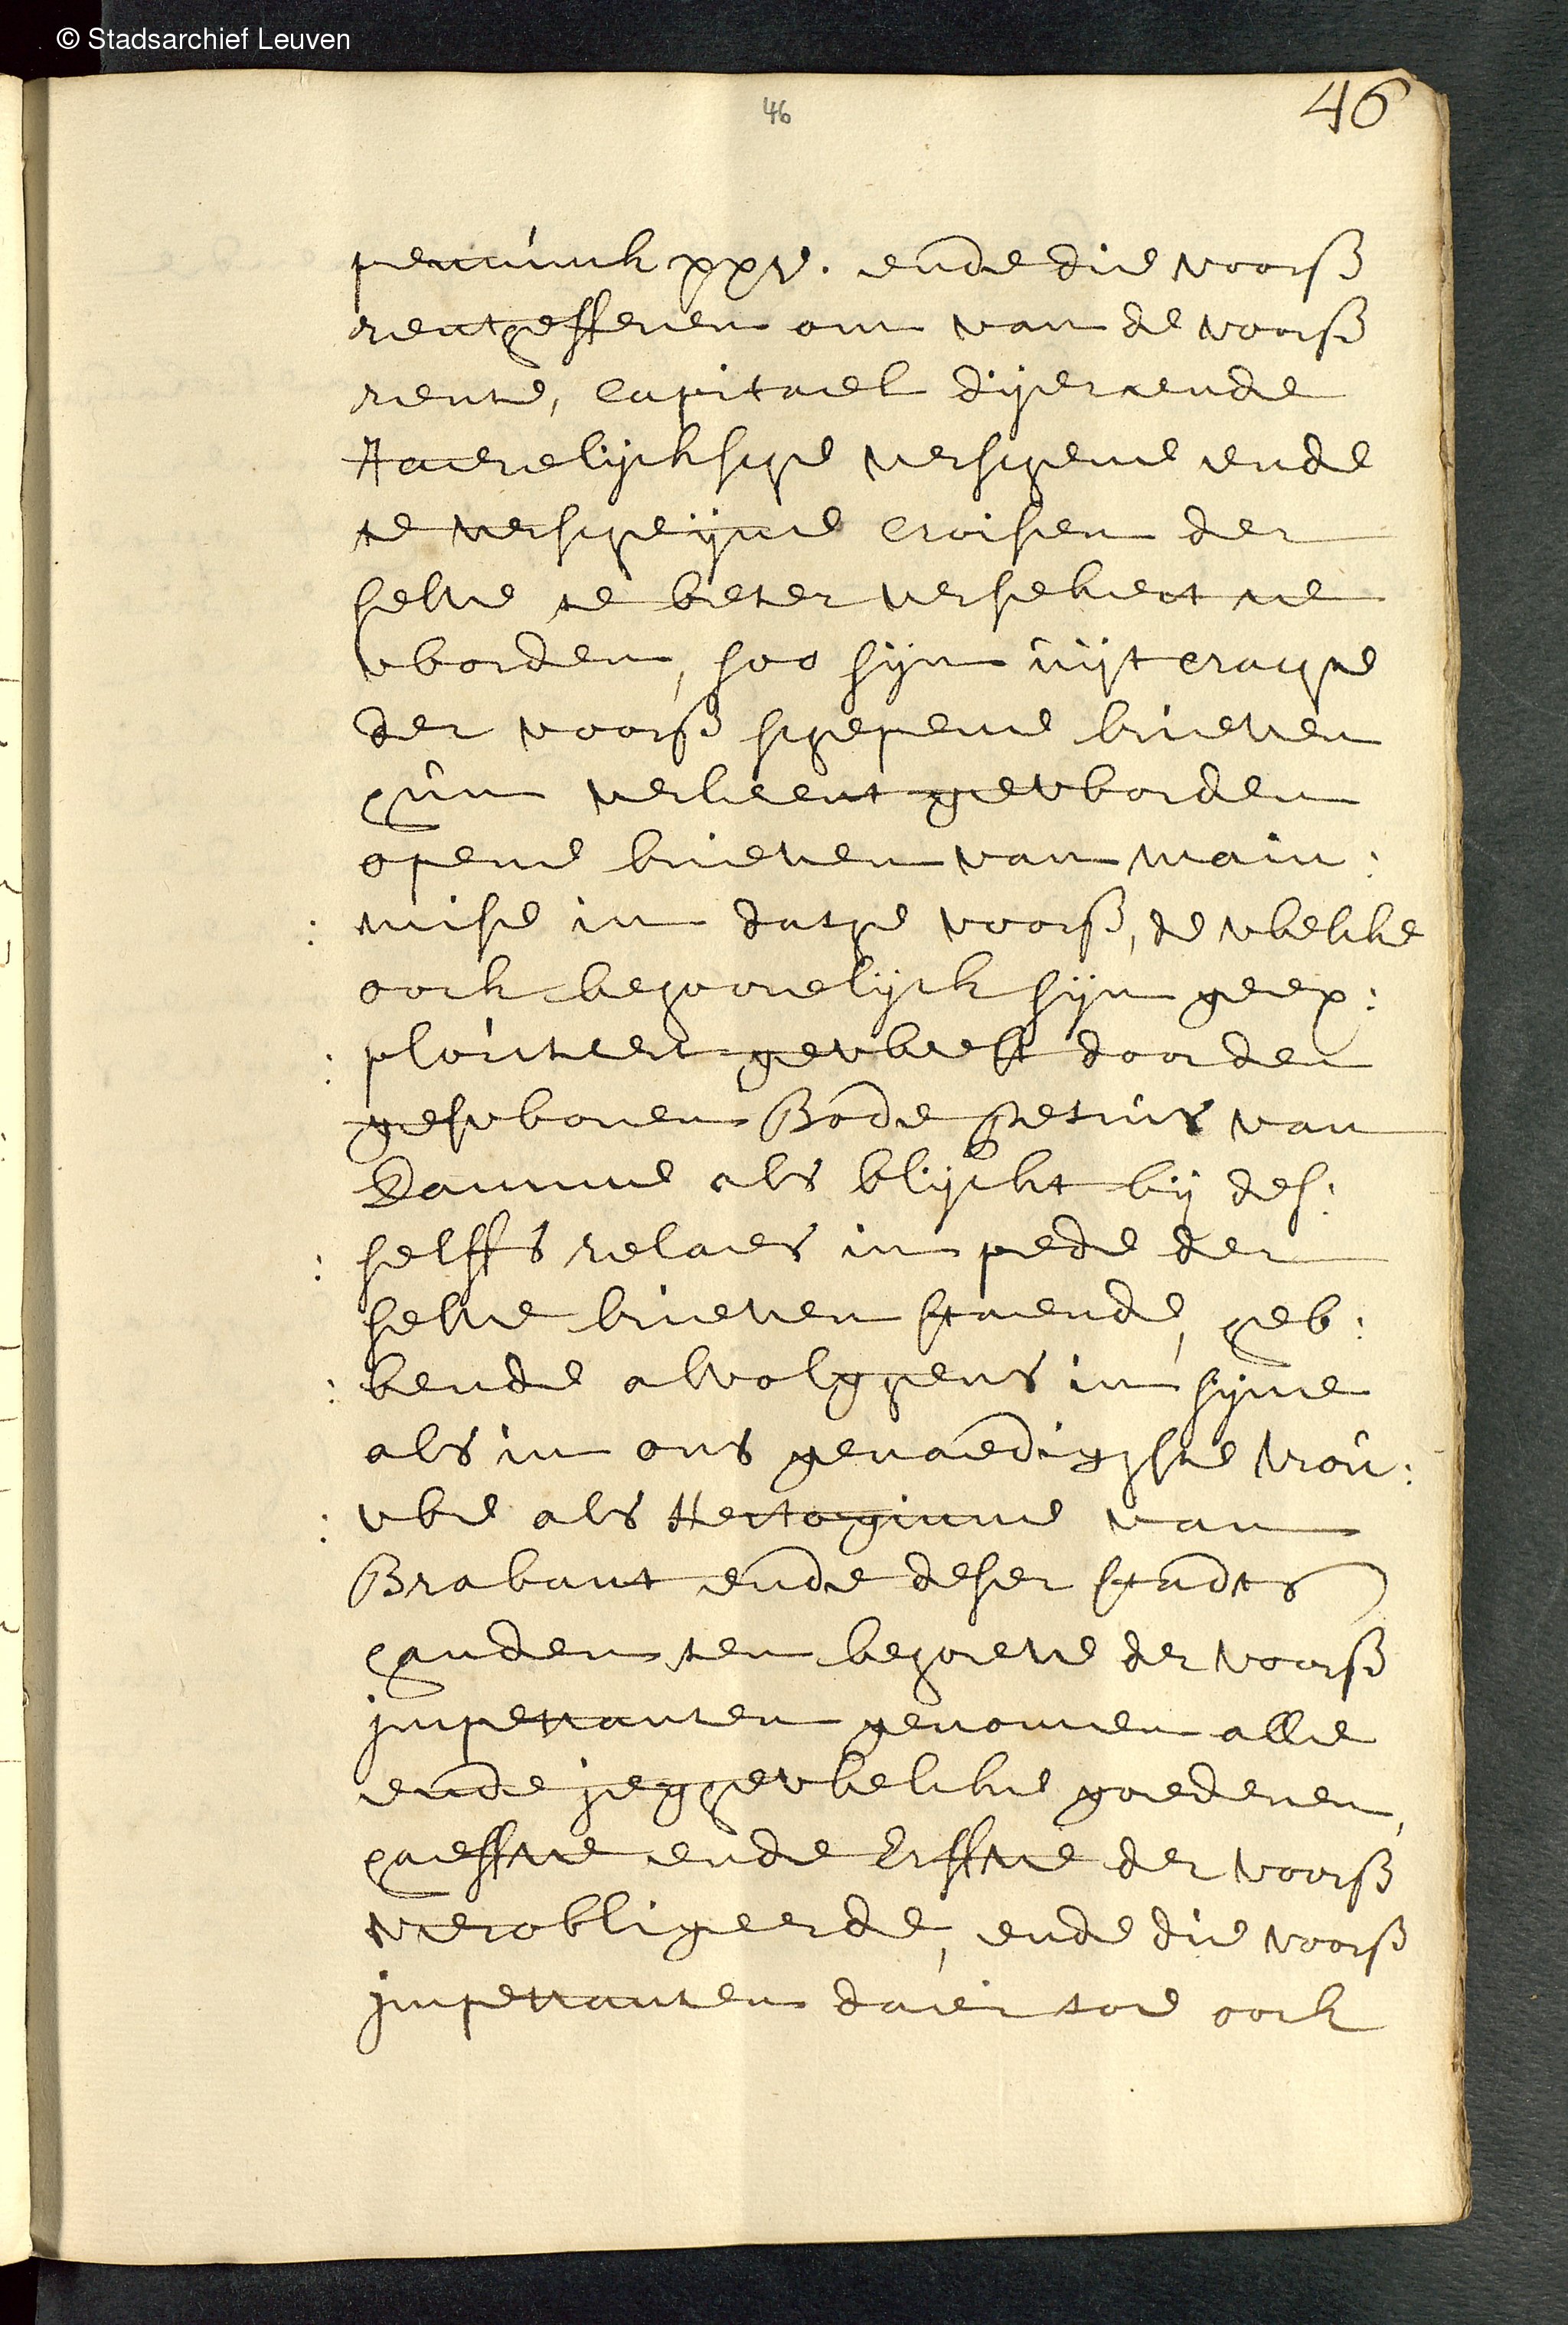 © Stadsarchief Leuven
46
46
penninck xxv. ende die voorß
rentheffenen om van de voorß
rente, capitael dijer ende
Jaerelijcksche verschene ende
te verscheijne croisen der
selve te beter versekert te
worden, soo sijn uijt crachte
der voorß schepene brieven
hun verleent geworden
opene brieven van main:
: mise in dathe voorß, de welcke
oock behoorelijck sijn geex:
: ploicteert geweest door den
gesworen Bode Petrus van
Damme als blijckt bij des:
: selffs relaes in pede der
selve brieven staende, heb:
: bende alvolghens in sijne
als in ons genaedighste vrou:
: wbe als Hertoginne van
Brabant ende deser stadts
handen ten behoeve der voorß
impetranten genomen alle
ende jeghewelcke goederen,
haeffve ende Erffve der voorß
verobligeerde, ende die voorß
impetranten daer toe oock